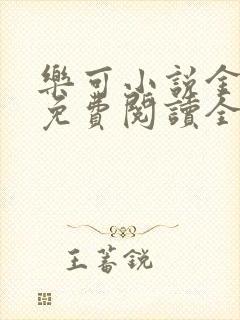 樂可小說全
免費閱讀全
王蕃銳